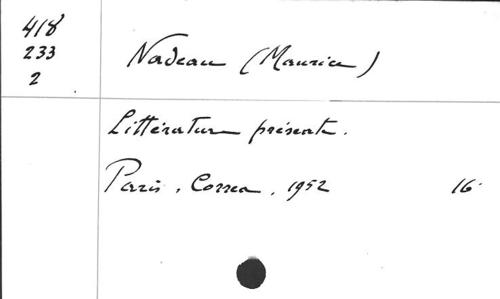 418
233
2
Nadeau (Maurice)
Littérature présente.
Paris, Correa, 1952 16°